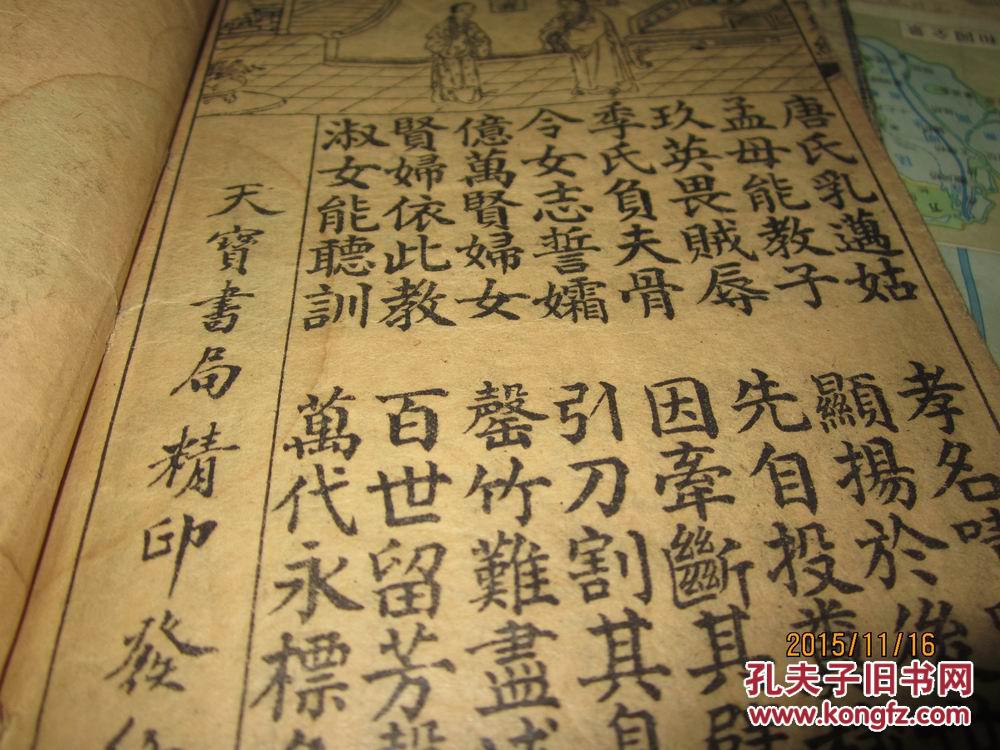 唐氏乳邁姑
孝名
孟母能教子
顯揚於
玖英畏賊辱
先自投
季氏負夫骨
因牽斷其
令女志誓孀
引刀割其
億萬賢婦女
罄竹難盡
賢婦依此教
百世留芳
淑女能聽訓
萬代永標
天寶書局精印發
2015/11/16
孔夫子旧书网
www.kongfz.com